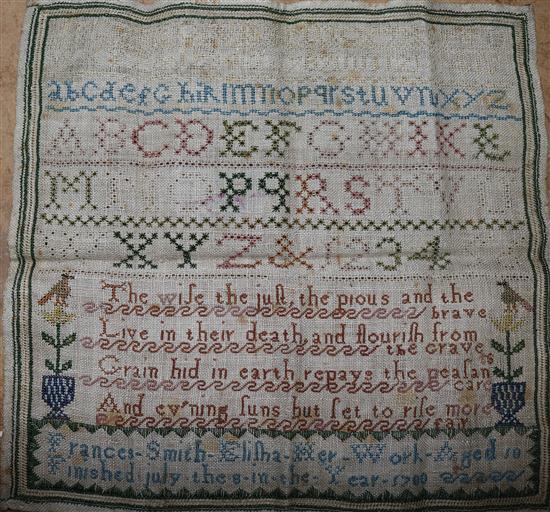 abcdefghiklmnopqrstuvwxyz
ABCDEFGHIKL
M PqRSTV
XYZ&1234
The wiſe the juſt, the pious and the
brave
Live in their death, and flouriſh from
the Grave
Grain hid in earth repays the peaſan
ts
care
And ev'ning ſuns but ſet to riſe more
fair
Frances-Smith-Eliſha-Her-Work-Aged 10
Finished july the 8-in-the-Year-1700